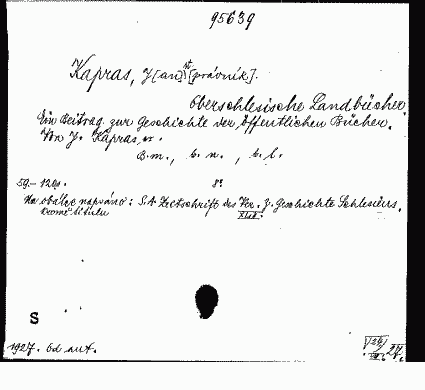 95639
Kapras, J[an] st. [právník].
Oberschlesische Landbücher.
Ein Beitrag zur Geschichte der öffentlichen Bücher.
Von J. Kapras,
B.m., b.n., b.l.
59.-120s. 8°
Na obálce napsáno: S.A. Zeitschrift des Ver. z. Geschichte Schlesiens.
kromě titulu XLII.
S
1927. od aut.
27.